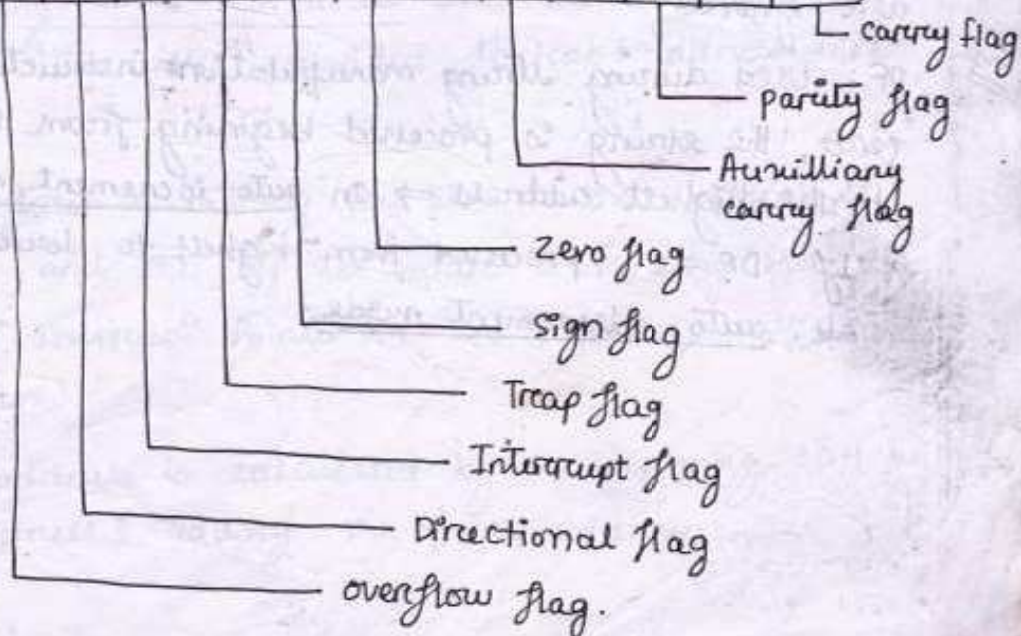 carry flag
parity flag
Auxilliary
carry flag
Zero flag
Sign flag
Trap flag
Interrupt flag
Directional flag
overflow flag.